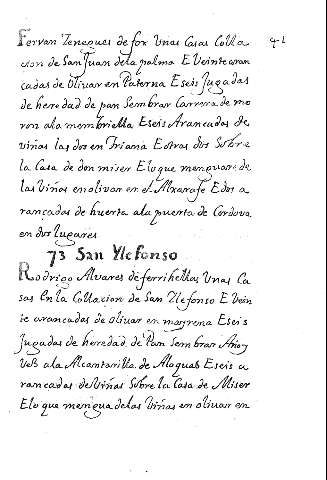 Ferran Venegues de fox Unas Casas Colla
cion de San Juan de la palma E Veinte aran
cadas de Olivar en Paterna E seis Jugadas
de heredad de pan Sembrar Carrera de mo
ron a la membrilla E seis Arancadas de
viñas las dos en Triana E otras dos Sobre
la Casa de don miser E lo que menguare de
las Viñas en olivar en el Alxarafe E dos a
rancadas de huerta a la puerta de Cordova
en dos lugares
73 San Ylefonso
Rodrigo Alvares de ferrihellas Unas Ca
sas En la Collacion de San Ylefonso E Vein
te arancadas de olivar en mayrena E seis
Jugadas de heredad de Pan Sembrar Año y
Vez a la Alcantarilla de Alaquas E seis a
rancadas de Viñas Sobre la Casa de Miser
E lo que mengua de las Viñas en olivar en